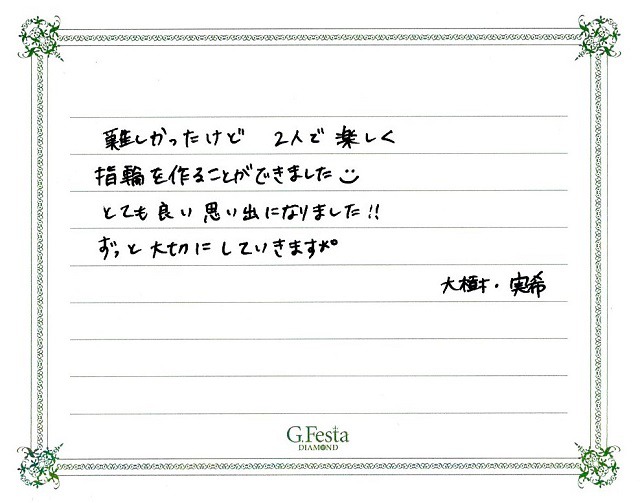 難しかったけど 2人で楽しく
指輪を作ることができました
とても良い思い出になりました!!
ずっと大切にしていきます
大樹・実希
G.Festa
DIAMOND